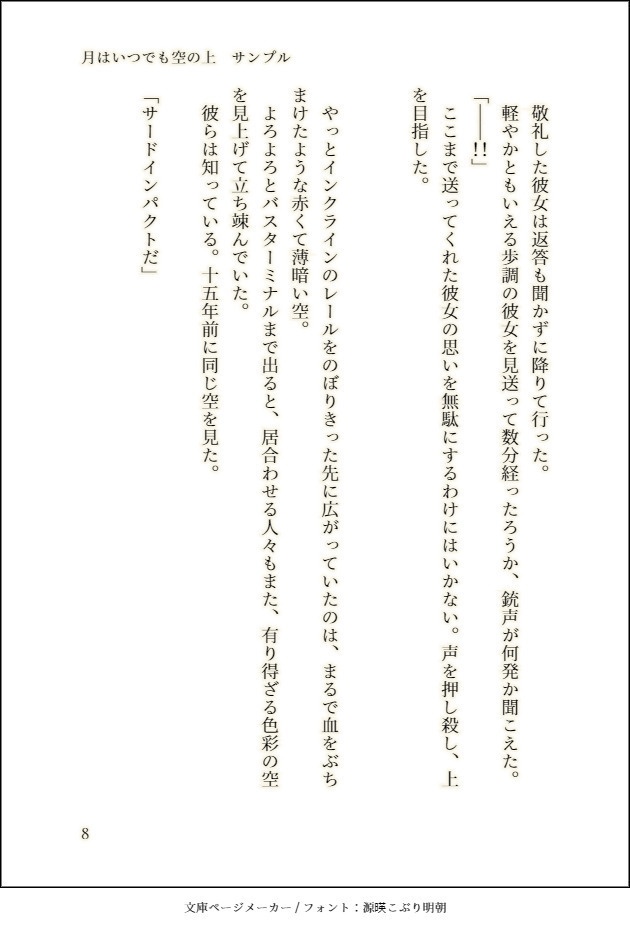 月はいつでも空の上　サンプル
敬礼した彼女は返答も聞かずに降りて行った。
軽やかともいえる歩調の彼女を見送って数分経ったろうか、銃声が何発か聞こえた。
「――!!」
ここまで送ってくれた彼女の思いを無駄にするわけにはいかない。声を押し殺し、上
を目指した。
やっとインクラインのレールをのぼりきった先に広がっていたのは、まるで血をぶち
まけたような赤くて薄暗い空。
よろよろとバスターミナルまで出ると、居合わせる人々もまた、有り得ざる色彩の空
を見上げて立ち竦んでいた。
彼らは知っている。十五年前に同じ空を見た。
「サードインパクトだ」
8
文庫ページメーカー / フォント：源暎こぶり明朝